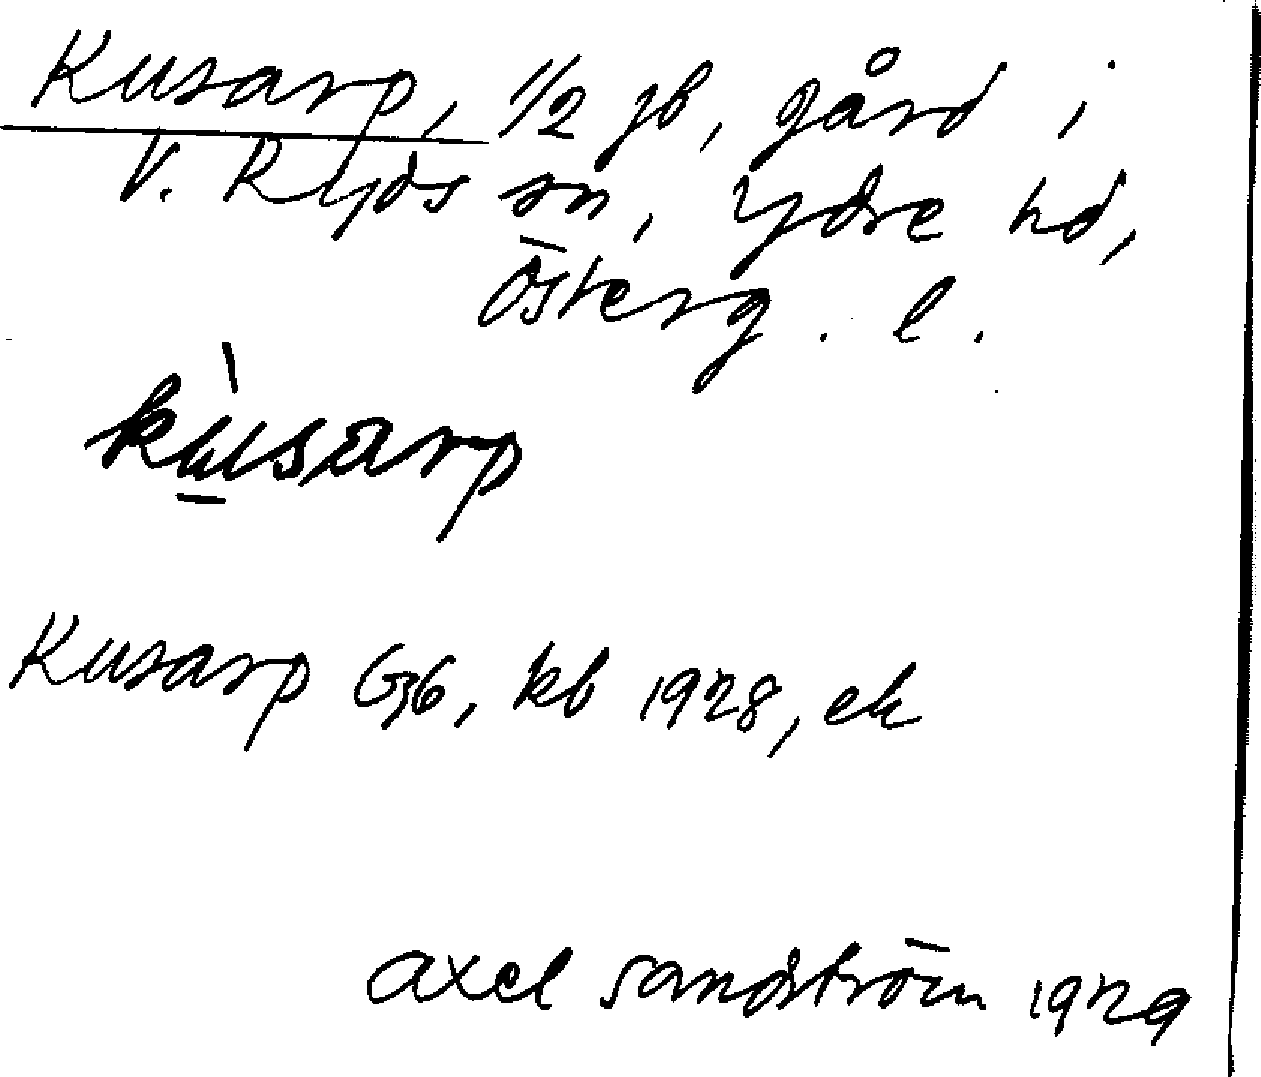 Kusarp, 1/2 jb, gård i
V. Ryds sn, Ydre hd,
Österg. l.
kùsarp
Kusarp G36, kb 1928, ek
Axel Sandström 1929